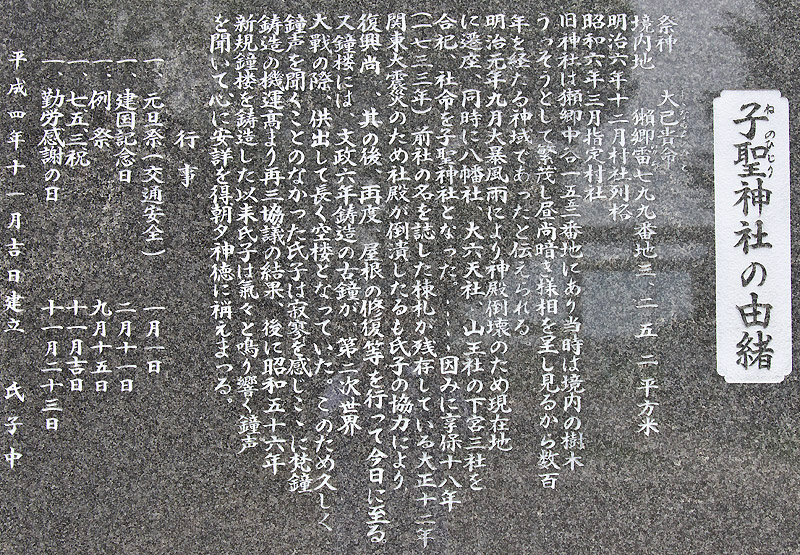 子聖神社の由緒
ねのひじり
祭神 大己貴命
境内地 獺郷雷七九九番地三、二五二平方米
明治六年十二月村社列格
昭和六年三月指定村社
旧神社は獺郷中谷一五三番地にあり当時は境内の樹木
うっそうとして繁茂し昼尚暗き様相を呈し見るから数百
年を経たる神域であったと伝えられる
明治元年九月大暴風雨により神殿倒壊のため現在地
に遷座、同時に八幡社、大六天社、山王社の下宮三社を
合祀、社命を子聖神社となった。……因みに享保十八年
(一七三三年)前社の名を誌した棟札が残存している大正十二年
関東大震災のため社殿が倒潰したるも氏子の協力により
復興尚、其の後、再度、屋根の修復等を行って今日に至る。
又鐘楼には、文政六年鋳造の古鐘が、第二次世界
大戦の際、供出して長く空楼となっていた。このため久しく
鐘声を聞くことのなかった氏子は寂寥を感じここに梵鐘
鋳造の機運高より再三協議の結果、後に昭和五十六年
新規鐘楼を鋳造した以来氏子は氣々と鳴り響く鐘声
を聞いて心に安詳を得朝夕神徳に稱えまつる。
行事
一、元旦祭(交通安全) 一月一日
一、建国記念日 二月十一日
一、例祭 九月十五日
一、七五三祝 十一月吉日
一、勤労感謝の日 十一月二十三日
平成四年十一月吉日建立 氏子中